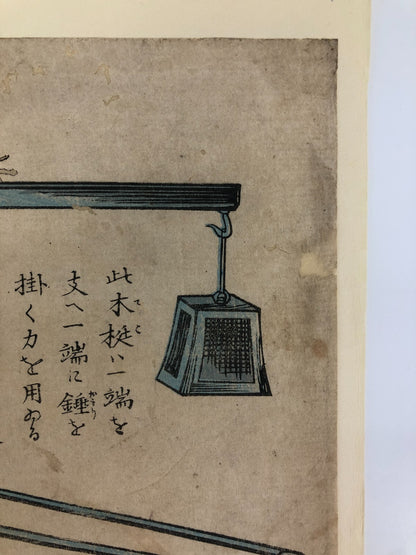 此木梃ハ一端を
支へ一端に錘を
掛く力を用ゐる